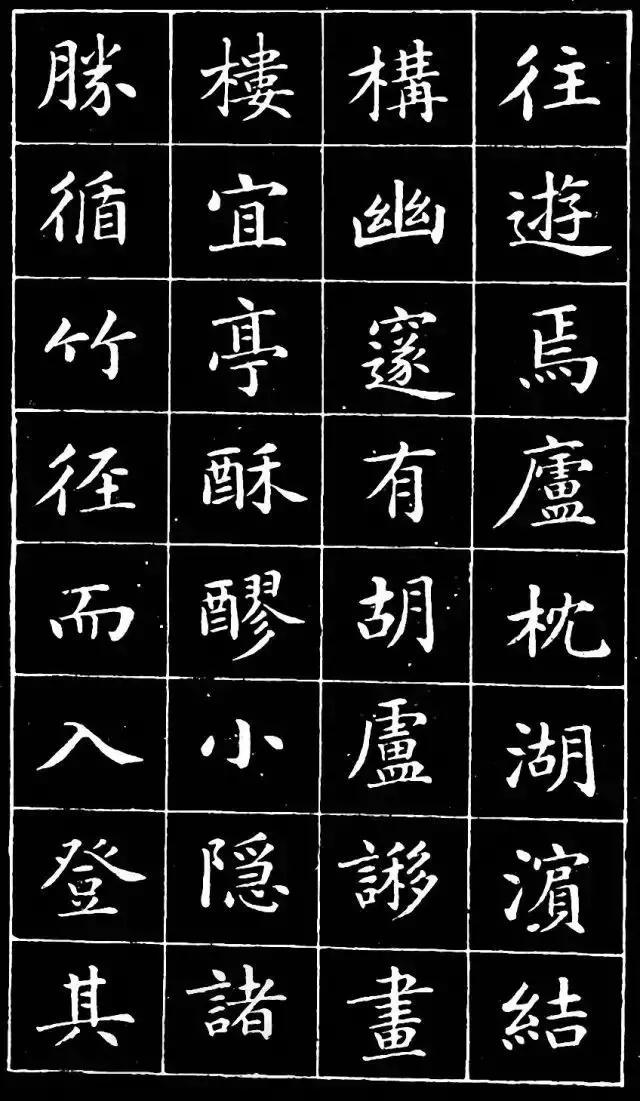 往遊焉廬枕湖濵結
構幽邃有胡盧謻畫
樓宜亭酥醪小隐諸
勝循竹徑而入登其